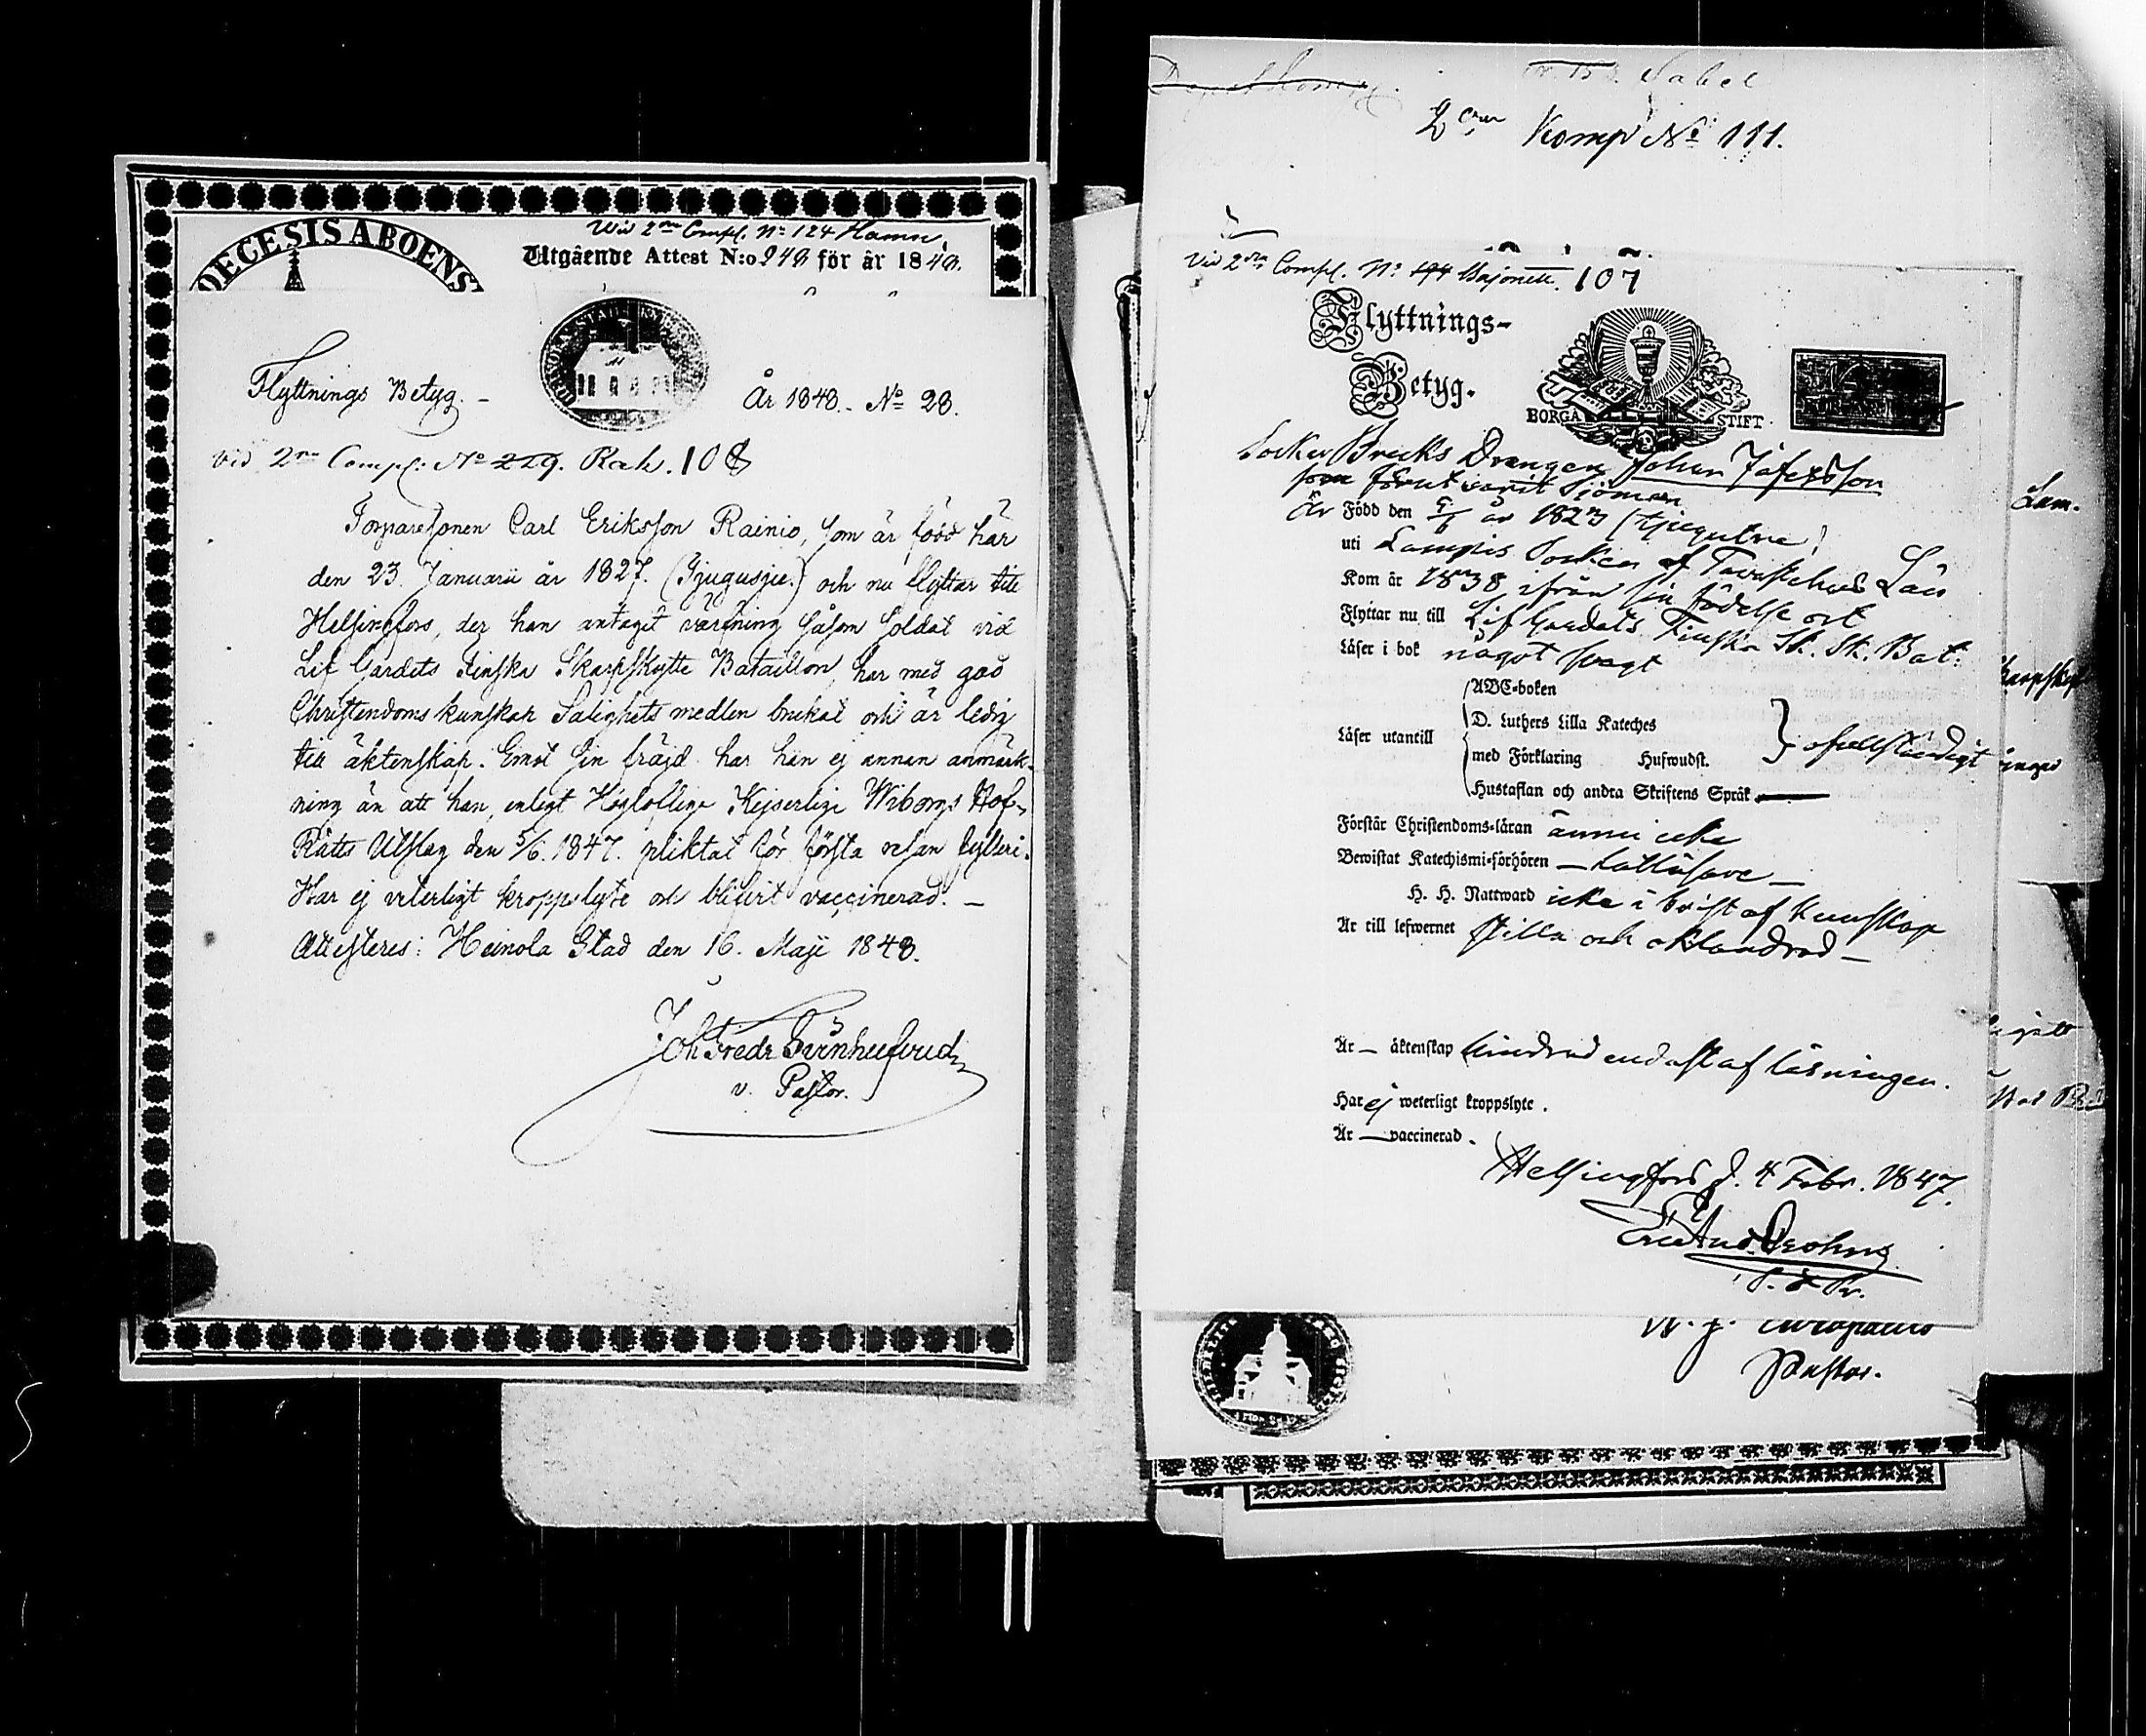 DECESIS ABOENS
Wid 2ra Compl. No 124 Hamn.
Utgående Attest N:o 248 för år 1848.
Flyttnings Betyg. –
År 1848. No 28.
Vid 2ra Compl. No 229. Rak. 108
Torparesonen Carl Eriksson Rainio, som är född här
den 23 Januarii år 1827. (Tjugusju.) och nu flyttar till
Helsingfors, der han antagit värfning såsom Soldat vid
Lif Gardets Finska Skarpskytte Bataillon, har med god
Christendoms kunskap Salighets medlen brukat och är ledig
till äktenskap. Emot sin fräjd har han ej annan anmärk-
ning än att han, enligt Högloflige Kejserlige Wiborgs Hof-
Rätts Utslag den 5/6. 1847. pliktat för första resan fylleri.
Har ej veterligt kroppslyte och blifvit vaccinerad. –
Attesteras: Heinola Stad den 16. Maji 1848.
Joh Fredr Svinhufvud
v. Pastor.
Sabel
2dra Komp No 111.
Vid 2dra Compl. No 194 Bajonett. 107
Flyttnings-
Betyg.
BORGÅ STIFT
Socker Bruks Drengen Johan Jäfexsson
som förut varit Sjöman
Är Född den 5/6 år 1823 (tjugutre)
uti Lampis Socken af Tavastehus Län
Kom år 1838 ifrån sin födelse ort
Flyttar nu till Lif Gardets Finska Sk. Sk. Bat:
Läser i bok något svagt
Läser utantill
ABC-boken
D. Luthers Lilla Kateches
med Förklaring Hufwudst.
Hustaflan och andra Skriftens Språk
ofullständigt
Förstår Christendoms-läran ännu icke
Bewistat Katechismi-förhören –
H. H. Nattward icke i brist af Kunskap
Är till lefwernet stilla och oklandrad –
Är – äktenskap hindrad endast af läsningen.
Har ej weterligt kroppslyte.
Är — vaccinerad.
Helsingfors d. 4 Febr. 1847.
Pastor.